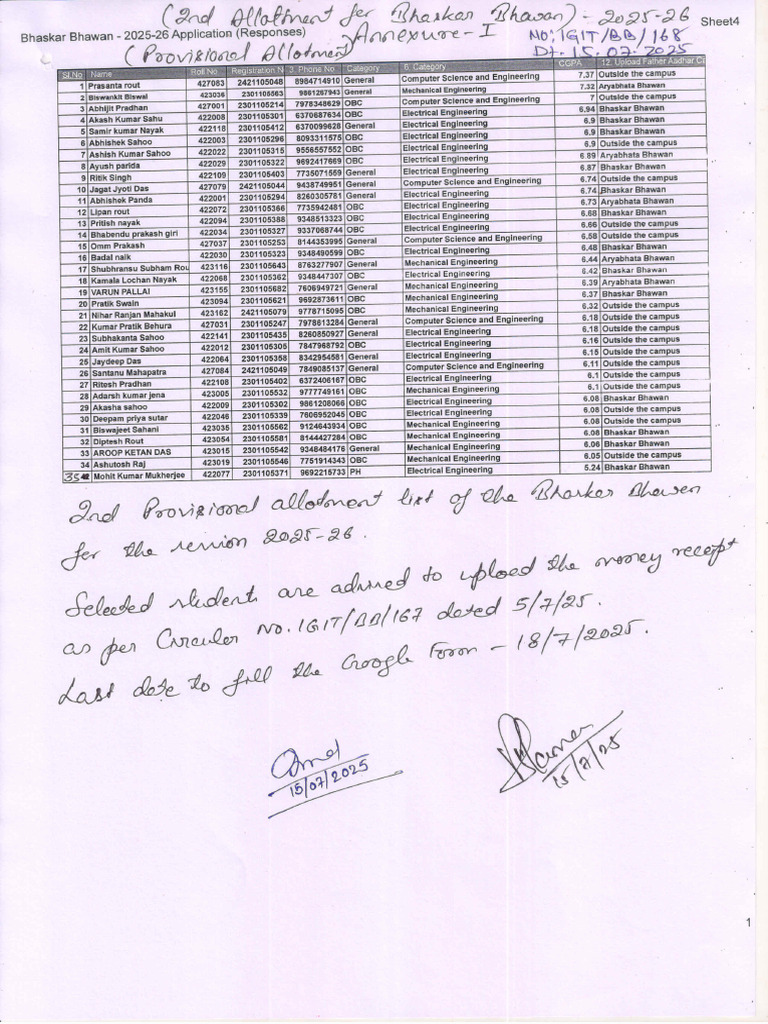 (2nd Allotment for Bhaskar Bhawan) - 2025-26
Sheet4
Bhaskar Bhawan - 2025-26 Application (Responses)
Annexure-I
NO:IGIT/BB/168
(Provisional Allotment)
Dt. 15.07.2025
Sl.No Name Roll No Registration N 3. Phone No Category 6. Category CGPA 12. Upload Father Aadhar C
1 Prasanta rout 427083 2421105048 8984714910 General Computer Science and Engineering 7.37 Outside the campus
2 Biswankit Biswal 423036 2301105563 9861267943 General Mechanical Engineering 7.32 Aryabhata Bhawan
3 Abhijit Pradhan 427001 2301105214 7978348629 OBC Computer Science and Engineering 7 Outside the campus
4 Akash Kumar Sahu 422008 2301105301 6370687634 OBC Electrical Engineering 6.94 Bhaskar Bhawan
5 Samir kumar Nayak 422118 2301105412 6370099628 General Electrical Engineering 6.9 Bhaskar Bhawan
6 Abhishek Sahoo 422003 2301105296 8093311575 OBC Electrical Engineering 6.9 Bhaskar Bhawan
7 Ashish Kumar Sahoo 422022 2301105315 9556557552 OBC Electrical Engineering 6.9 Outside the campus
8 Ayush parida 422029 2301105322 9692417669 OBC Electrical Engineering 6.89 Aryabhata Bhawan
9 Ritik Singh 422109 2301105403 7735071559 General Electrical Engineering 6.87 Bhaskar Bhawan
10 Jagat Jyoti Das 427079 2421105044 9438749951 General Computer Science and Engineering 6.74 Outside the campus
11 Abhishek Panda 422001 2301105294 8260305781 General Electrical Engineering 6.74 Bhaskar Bhawan
12 Lipan rout 422072 2301105366 7735942481 OBC Electrical Engineering 6.73 Aryabhata Bhawan
13 Pritish nayak 422094 2301105388 9348513323 OBC Electrical Engineering 6.68 Bhaskar Bhawan
14 Bhabendu prakash giri 422034 2301105327 9337068744 OBC Electrical Engineering 6.66 Outside the campus
15 Omm Prakash 427037 2301105253 8144353995 General Computer Science and Engineering 6.58 Outside the campus
16 Badal naik 422030 2301105323 9348490599 OBC Electrical Engineering 6.48 Bhaskar Bhawan
17 Shubhransu Subham Rou 423116 2301105643 8763277907 General Mechanical Engineering 6.44 Aryabhata Bhawan
18 Kamala Lochan Nayak 422068 2301105362 9348447307 OBC Electrical Engineering 6.42 Bhaskar Bhawan
19 VARUN PALLAI 423155 2301105682 7606949721 General Mechanical Engineering 6.39 Aryabhata Bhawan
20 Pratik Swain 423094 2301105621 9692873611 OBC Mechanical Engineering 6.37 Bhaskar Bhawan
21 Nihar Ranjan Mahakul 423162 2421105079 9778715095 OBC Mechanical Engineering 6.32 Outside the campus
22 Kumar Pratik Behura 427031 2301105247 7978613284 General Computer Science and Engineering 6.18 Outside the campus
23 Subhakanta Sahoo 422141 2301105435 8260850927 General Electrical Engineering 6.18 Outside the campus
24 Amit Kumar Sahoo 422012 2301105305 7847968792 OBC Electrical Engineering 6.16 Outside the campus
25 Jaydeep Das 422064 2301105358 8342954581 General Electrical Engineering 6.15 Outside the campus
26 Santanu Mahapatra 427084 2421105049 7849085137 General Computer Science and Engineering 6.11 Outside the campus
27 Ritesh Pradhan 422108 2301105402 6372406167 OBC Electrical Engineering 6.1 Outside the campus
28 Adarsh kumar jena 423005 2301105532 9777749161 OBC Mechanical Engineering 6.1 Outside the campus
29 Akasha sahoo 422009 2301105302 9861208066 OBC Electrical Engineering 6.08 Bhaskar Bhawan
30 Deepam priya sutar 422046 2301105339 7606952045 OBC Electrical Engineering 6.08 Outside the campus
31 Biswajeet Sahani 423035 2301105562 9124643934 OBC Mechanical Engineering 6.08 Outside the campus
32 Diptesh Rout 423054 2301105581 8144427284 OBC Mechanical Engineering 6.08 Bhaskar Bhawan
33 AROOP KETAN DAS 423015 2301105542 9348484176 General Mechanical Engineering 6.06 Bhaskar Bhawan
34 Ashutosh Raj 423019 2301105546 7751914343 OBC Mechanical Engineering 6.05 Outside the campus
35 Mohit Kumar Mukherjee 422077 2301105371 9692215733 PH Electrical Engineering 5.24 Bhaskar Bhawan
2nd Provisional allotment list of the Bhaskar Bhawan
for the session 2025-26.
Selected students are advised to upload the money receipt
as per Circular No. IGIT/BB/167 dated 5/7/25.
Last date to fill the Google Form - 18/7/2025.
15/07/2025
15/7/25
1